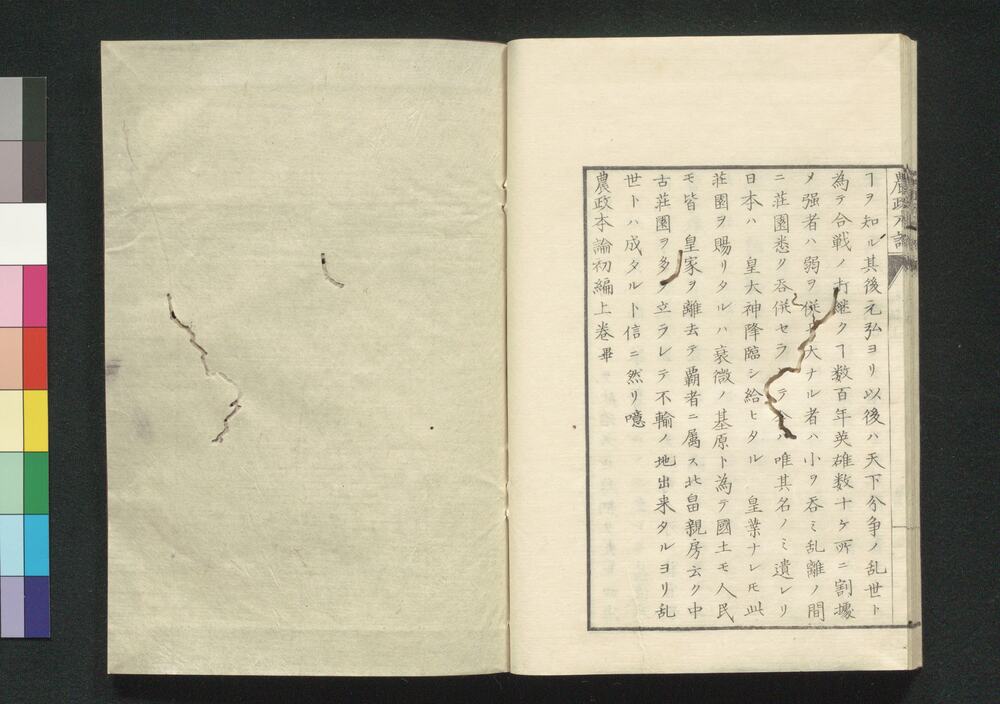 農政本論
ヿヲ知ル其後元弘ヨリ以後ハ天下分争ノ乱世ト
為テ合戦ノ打継クヿ数百年英雄数十ケ所ニ割據
メ强者ハ弱ヲ併セ大ナル者ハ小ヲ呑ミ乱離ノ間
ニ荘園悉ク呑併セラ テ今ハ唯其名ノミ遺レリ
日本ハ 皇大神降臨シ給ヒタル 皇業ナレ𪜈此
荘園ヲ賜リタルハ衰微ノ基原ト為テ國土モ人民
モ皆 皇家ヲ離去テ覇者ニ属ス北畠親房云ク中
古荘園ヲ多ク立ラレテ不輸ノ地出来タルヨリ乱
世トハ成タルト信ニ然リ噫
農政本論初編上巻畢